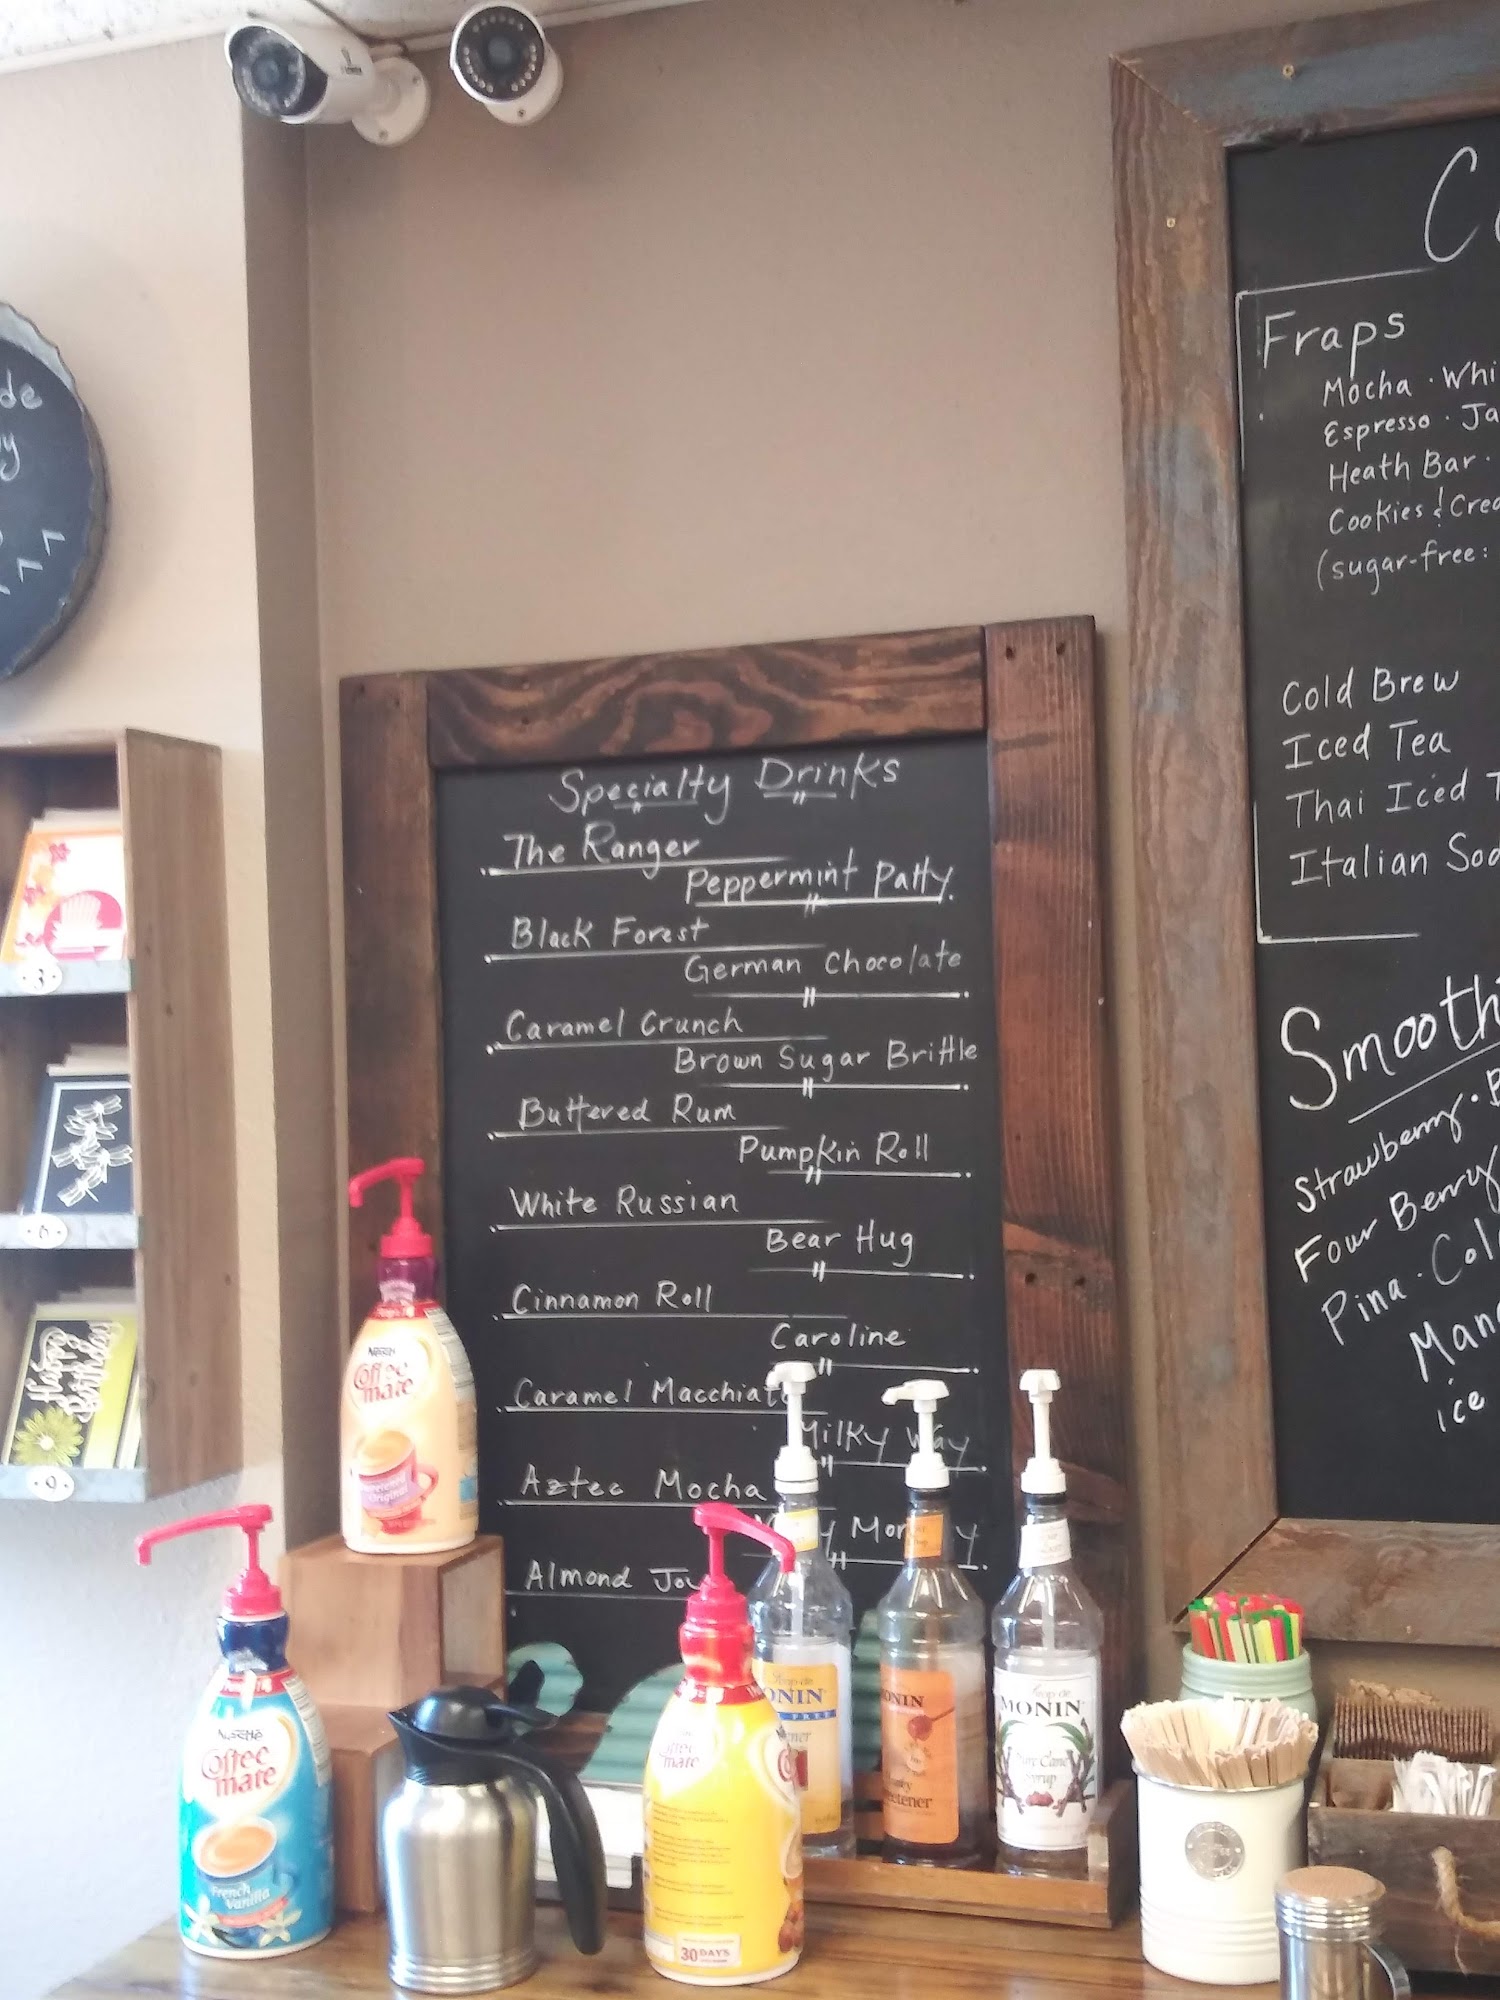 Specialty Drinks
The Ranger
Peppermint Patty
Black Forest
German Chocolate
Caramel Crunch
Brown Sugar Brittle
Buttered Rum
Pumpkin Roll
White Russian
Bear Hug
Cinnamon Roll
Caroline
Caramel Macchiato
Milky Way
Aztec Mocha
Almond Joy
Fraps
Mocha · Whi
Espresso · Ja
Heath Bar ·
Cookies & Crea
(sugar-free:
Cold Brew
Iced Tea
Thai Iced T
Italian Sod
Smoothi
Strawberry · B
Four Berry
Pina · Col
Mang
ice
de
3
6
Happy
Birthday
9
Nestlé
Coffee
mate
Original
Nestlé
Coffee
mate
French
Vanilla
Coffee
mate
30 DAYS
ONIN
FREE
MONIN
MONIN
Pure Cane
Syrup